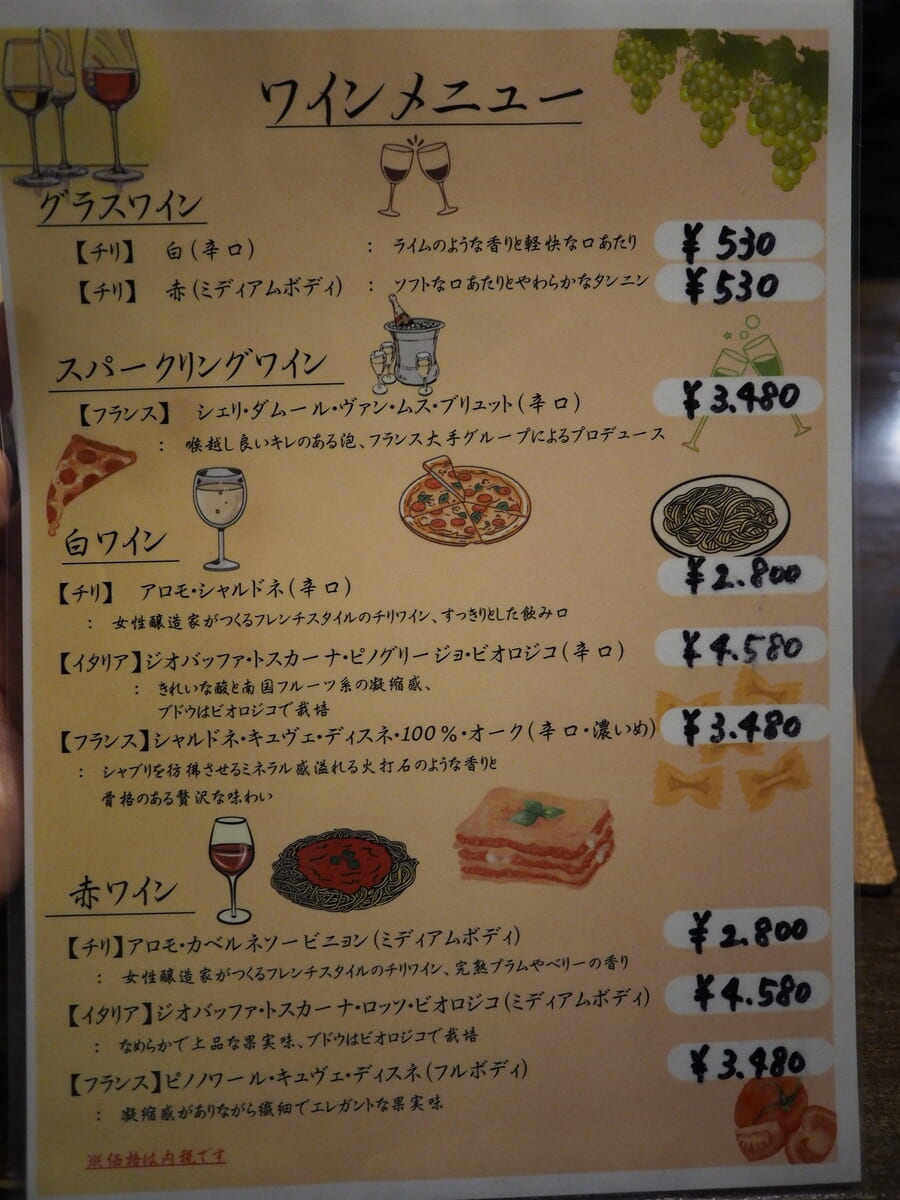 ワインメニュー
グラスワイン
【チリ】 白(辛口) : ライムのような香りと軽快な口あたり ¥530
【チリ】 赤(ミディアムボディ) : ソフトな口あたりとやわらかなタンニン ¥530
スパークリングワイン
【フランス】 シェリ・ダムール・ヴァン・ムス・ブリュット(辛口) ¥3.480
: 喉越し良いキレのある泡、フランス大手グループによるプロデュース
白ワイン
【チリ】 アロモ・シャルドネ(辛口) ¥2.800
: 女性醸造家がつくるフレンチスタイルのチリワイン、すっきりとした飲み口
【イタリア】ジオバッファ・トスカーナ・ピノグリージョ・ビオロジコ(辛口) ¥4.580
: きれいな酸と南国フルーツ系の凝縮感、
ブドウはビオロジコで栽培
【フランス】シャルドネ・キュヴェ・ディスネ・100%・オーク(辛口・濃いめ) ¥3.480
: シャブリを彷彿させるミネラル感溢れる火打石のような香りと
骨格のある贅沢な味わい
赤ワイン
【チリ】アロモ・カベルネソービニヨン(ミディアムボディ) ¥2.800
: 女性醸造家がつくるフレンチスタイルのチリワイン、完熟プラムやベリーの香り
【イタリア】ジオバッファ・トスカーナ・ロッソ・ビオロジコ(ミディアムボディ) ¥4.580
: なめらかで上品な果実味、ブドウはビオロジコで栽培
【フランス】ピノノワール・キュヴェ・ディスネ(フルボディ) ¥3.480
: 凝縮感がありながら繊細でエレガントな果実味
※価格は内税です